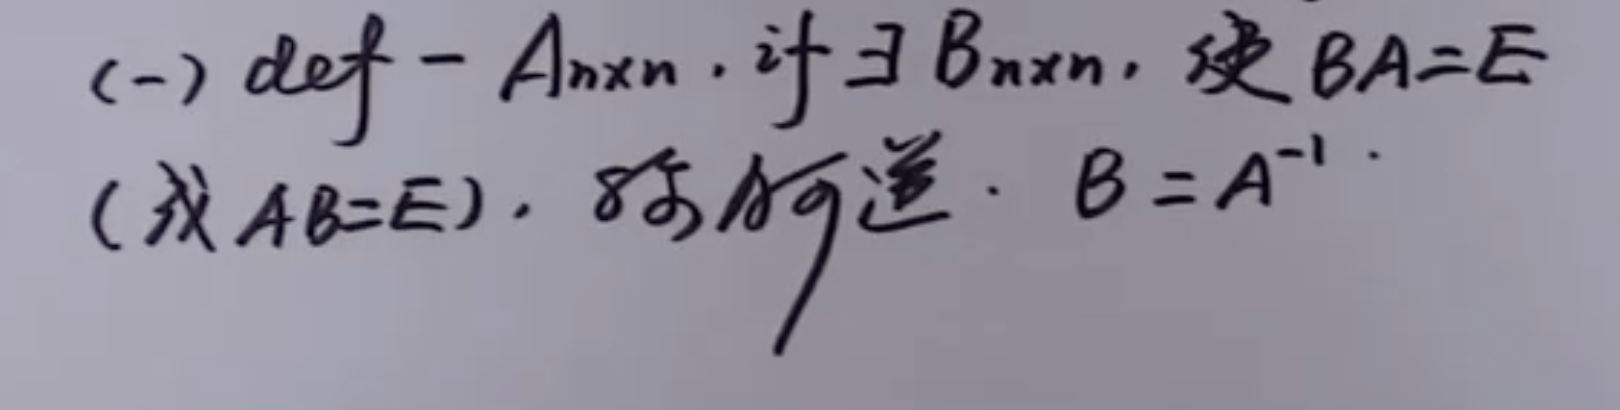 (一) def - Aₙₓₙ. if ∃ Bₙₓₙ, 使 BA=E
(或 AB=E). 称A可逆. B=A⁻¹.